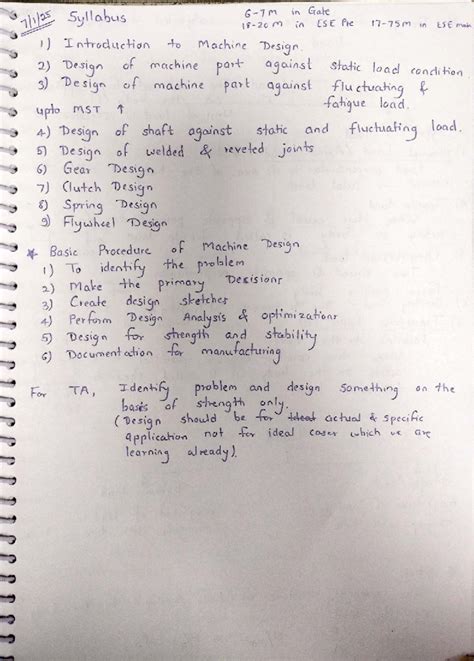 7/1/25 Syllabus
6-7m in Gate
18-20m in ESE Pre 17-75m in ESE main
1) Introduction to Machine Design
2) Design of machine part against static load condition
3) Design of machine part against fluctuating & fatigue load.
upto MST ↑
4) Design of shaft against static and fluctuating load.
5) Design of welded & reveted joints
6) Gear Design
7) Clutch Design
8) Spring Design
9) Flywheel Design
* Basic Procedure of Machine Design
1) To identify the problem
2) Make the primary Decisions
3) Create design sketches
4) Perform Design Analysis & optimizations
5) Design for strength and stability
6) Documentation for manufacturing
For TA, Identify problem and design something on the
basis of strength only.
(Design should be for ideal actual & specific
application not for ideal cases which we are
learning already).